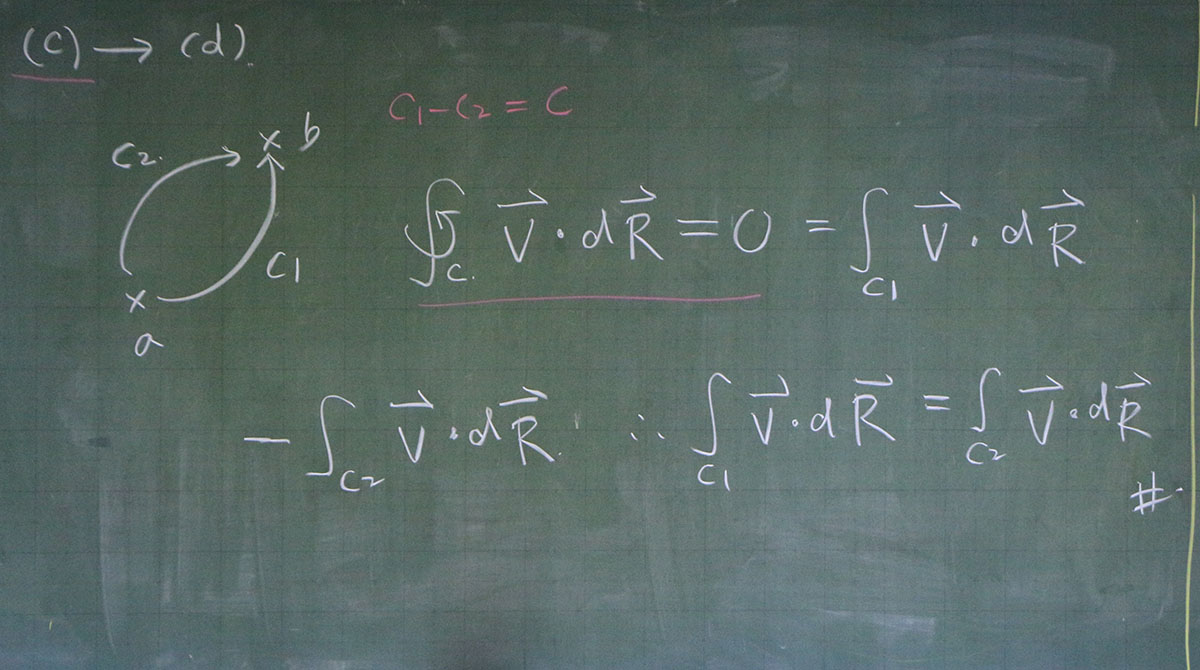 (c) → (d).
C1 - C2 = C
C2.
× b
C1
×
a
∮C. V⃗ · dR⃗ = 0 = ∫C1 V⃗ · dR⃗
- ∫C2 V⃗ · dR⃗. ∴ ∫C1 V⃗ · dR⃗ = ∫C2 V⃗ · dR⃗
#